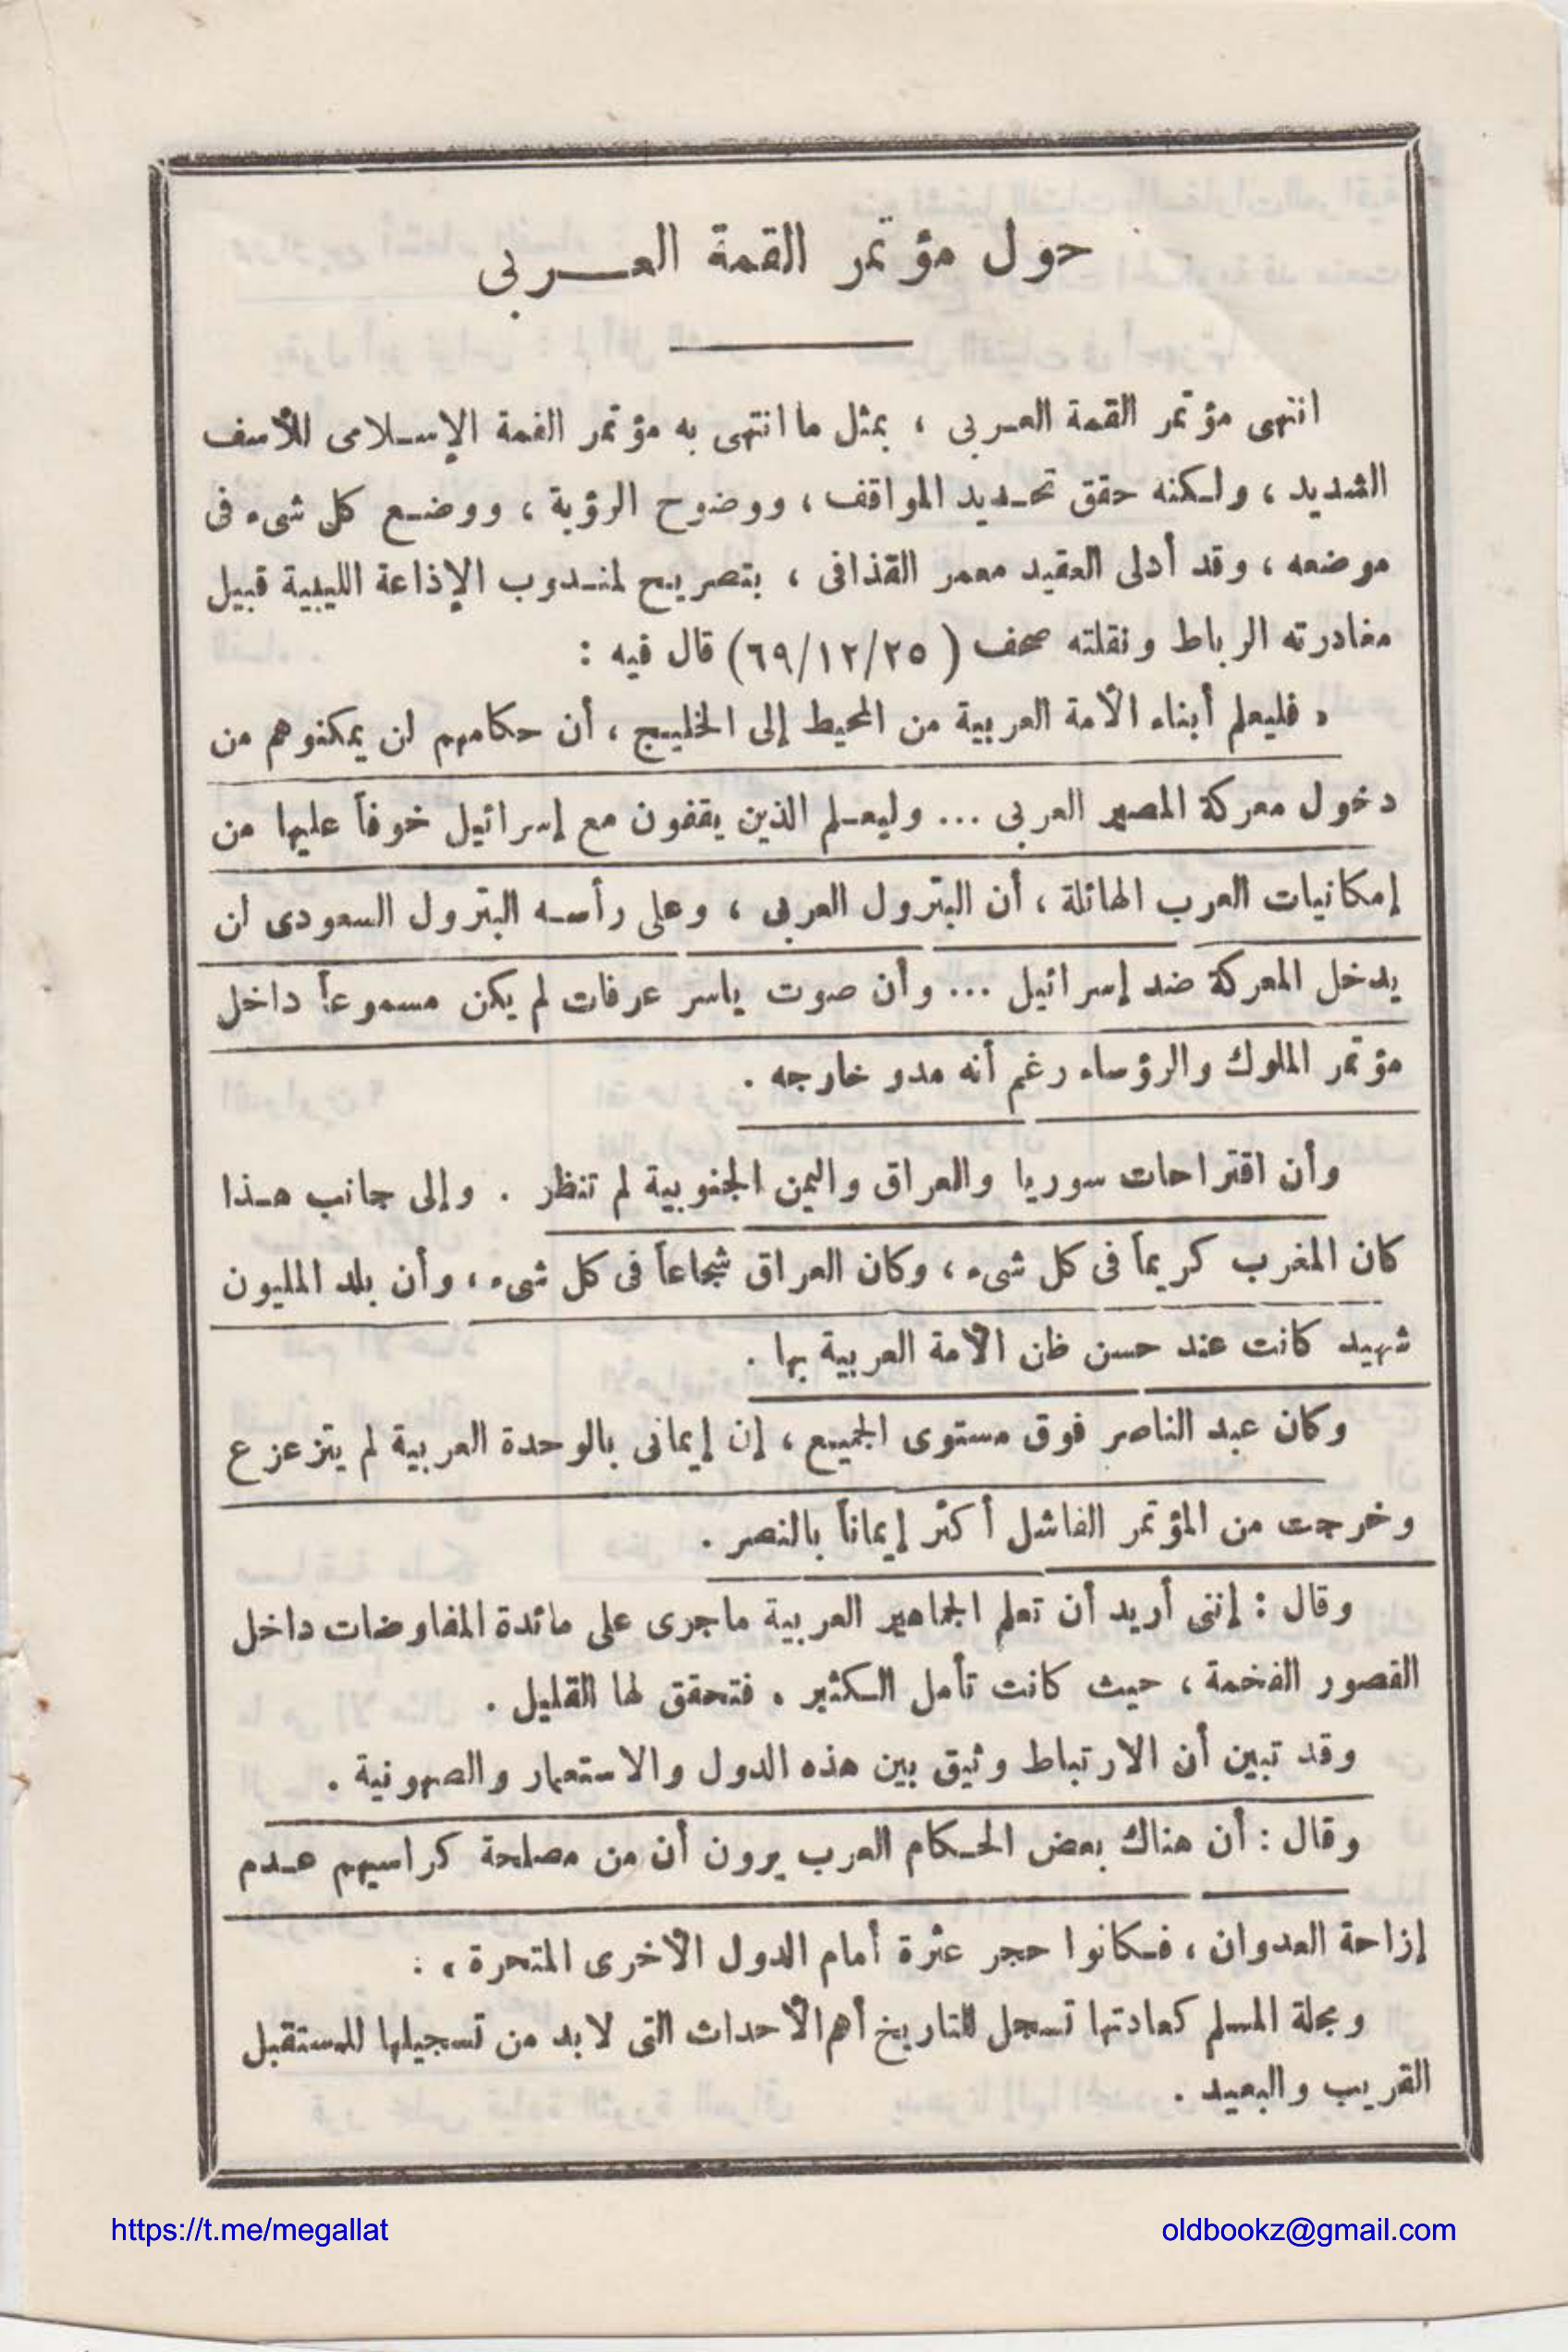 حول مؤتمر القمة العربى
انتهى مؤتمر القمة العربى ، بمثل ما انتهى به مؤتمر القمة الإسلامى للأسف
الشديد ، ولكنه حقق تحديد المواقف ، ووضوح الرؤية ، ووضع كل شىء فى
موضعه ، وقد أدلى العقيد معمر القذافى ، بتصريح لمندوب الإذاعة الليبية قبيل
مغادرته الرباط ونقلته صحف ( ٦٩/١٢/٢٥) قال فيه :
« فليعلم أبناء الأمة العربية من المحيط إلى الخليج ، أن حكامهم لن يمكنوهم من
دخول معركة المصير العربى ... وليعلم الذين يقفون مع إسرائيل خوفاً عليها من
إمكانيات العرب الهائلة ، أن البترول العربى ، وعلى رأسه البترول السعودى لن
يدخل المعركة ضد إسرائيل ... وأن صوت ياسر عرفات لم يكن مسموعاً داخل
مؤتمر الملوك والرؤساء رغم أنه مدو خارجه .
وأن اقتراحات سوريا والعراق واليمن الجنوبية لم تنظر . وإلى جانب هذا
كان المغرب كريماً فى كل شىء ، وكان العراق شجاعاً فى كل شىء ، وأن بلد المليون
شهيد كانت عند حسن ظن الأمة العربية بها .
وكان عبد الناصر فوق مستوى الجميع ، إن إيمانى بالوحدة العربية لم يتزعزع
وخرجت من المؤتمر الفاشل أكثر إيماناً بالنصر .
وقال : إننى أريد أن تعلم الجماهير العربية ماجرى على مائدة المفاوضات داخل
القصور الفخمة ، حيث كانت تأمل الكثير . فتحقق لها القليل .
وقد تبين أن الارتباط وثيق بين هذه الدول والاستعمار والصهونية .
وقال : أن هناك بعض الحكام العرب يرون أن من مصلحة كراسيهم عدم
إزاحة العدوان ، فكانوا حجر عثرة أمام الدول الأخرى المتحررة » :
ومجلة المسلم كعادتها تسجل للتاريخ أهم الأحداث التى لابد من تسجيلها للمستقبل
القريب والبعيد .
https://t.me/megallat
oldbookz@gmail.com